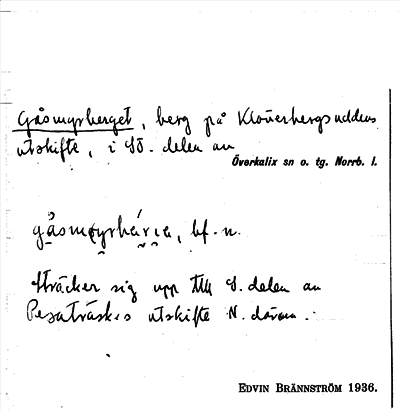 Gåsmyrberget, berg på Klöverbergsuddens
utskifte, i SÖ. delen av
Överkalix sn o. tg. Norrb. l.
gåsmyrbárıa, bf. n.
sträcker sig upp till S. delen av
Pesaträskes utskifte N. därom.
EDVIN BRÄNNSTRÖM 1936.